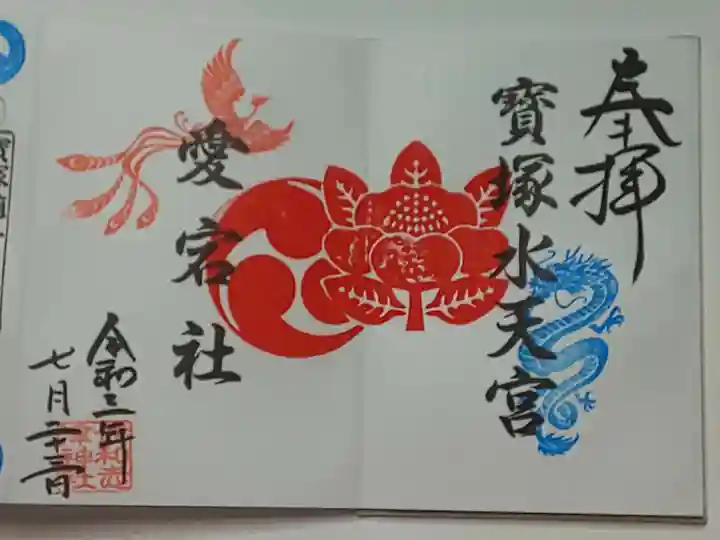 奉拝
寶塚水天宮
愛宕社
令和三年
七月二十三日